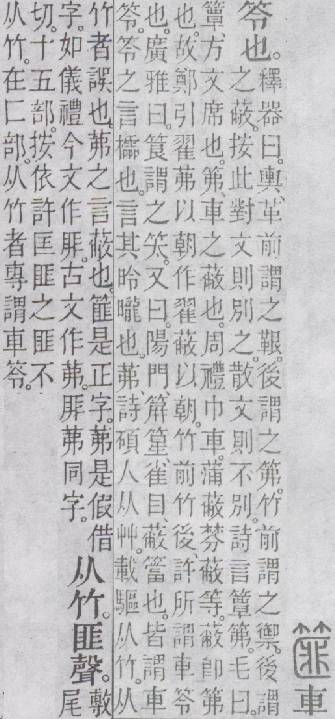 篚車
笭也。
釋器曰。輿革前謂之鞎。後謂之笰。竹前謂之禦。後謂
之蔽。按此對文則別之。散文則不別。詩言簟笰。毛曰。
簟。方文席也。笰車之蔽也。周禮巾車。蒲蔽棼蔽等。蔽卽笰
也。故鄭引翟茀以朝作翟蔽以朝。竹前竹後。許所謂車笭
也。廣雅曰。筤謂之笑。又曰。陽門䈂篁雀目蔽簹也。皆謂車
笭。笭之言櫺也。言其昤曨也。茀詩碩人从艸。載驅从竹。从
竹者誤也。茀之言蔽也。篚是正字。茀是假借
字。如儀禮今文作厞。古文作茀。厞茀同字。
从竹。匪聲。
敷
尾
切。十五部。按依許匡匪之匪不
从竹。在匚部。从竹者專謂車笭。